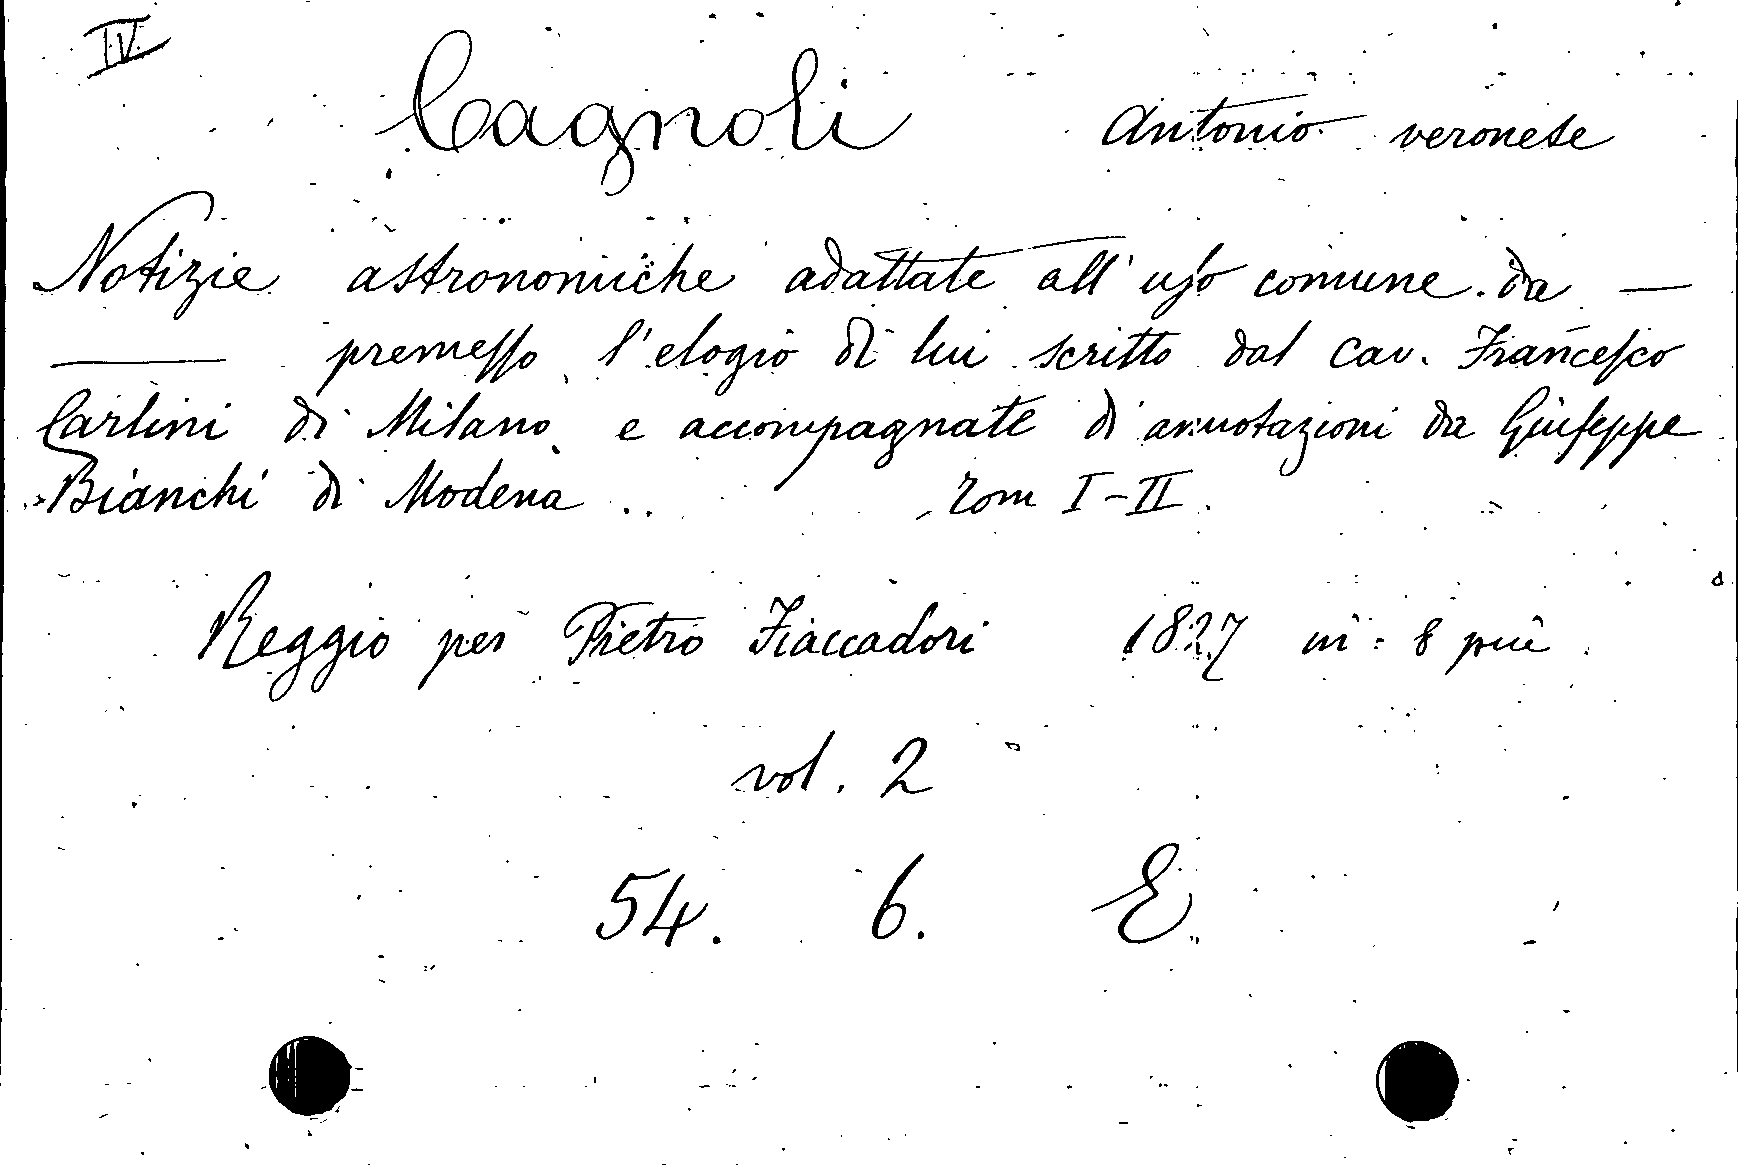 IV
Cagnoli Antonio veronese
Notizie astronomiche adattate all'uso comune. da —
— premesso l'elogio di lui scritto dal cav. Francesco
Carlini di Milano, e accompagnate di annotazioni da Giuseppe
Bianchi di Modena .. Tom I-II.
Reggio per Pietro Fiaccadori 1827 in = 8 picc.
vol. 2
54. 6. E.